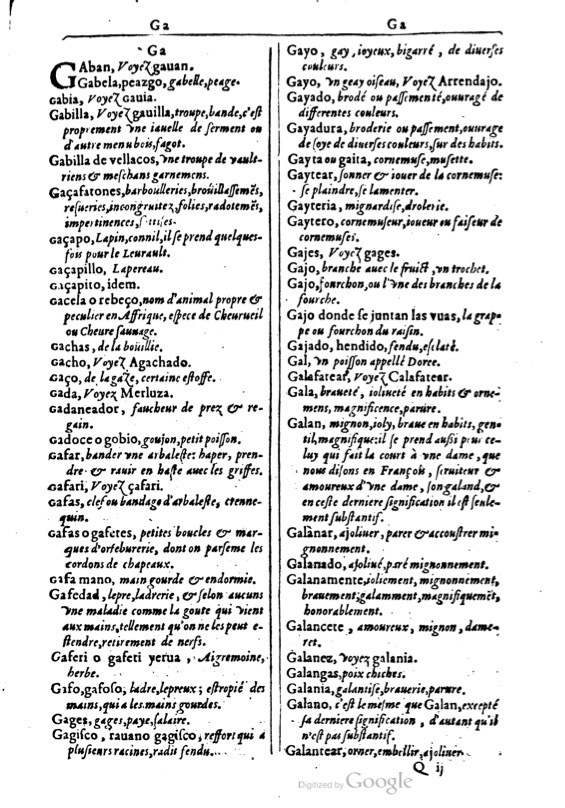 Ga
Ga
Ga
GAban, Voyez gauan.
Gabela, peazgo, gabelle, peage.
Gabia, Voyez gauia.
Gabilla, Voyez gauilla, troupe, bande, c'est
proprement vne iauelle de serment ou
d'autre menu bois, fagot.
Gabilla de vellacos, vne troupe de vault-
riens & meschans garnemens.
Gaçafatones, barboulleries, broüillassemēs,
resueries, incongruitez, folies, radotemēs,
impertinences, sottises.
Gaçapo, Lapin, connil, il se prend quelques-
fois pour le Leurault.
Gaçapillo, Lapereau.
Gaçapito, idem.
Gacela o rebeço, nom d'animal propre &
peculier en Affrique, espece de Cheurueil
ou Cheure sauuage.
Gachas, de la boüillie.
Gacho, Voyez Agachado.
Gaço, de la gaze, certaine estoffe.
Gada, Voyez Merluza.
Gadaneador, faucheur de prez & re-
gain.
Gadoce o gobio, goujon, petit poisson.
Gafar, bander vne arbaleste: haper, pren-
dre & rauir en haste auec les griffes.
Gafari, Voyez çafari.
Gafas, clef ou bandage d'arbaleste, ctenne-
quin.
Gafas o gafetes, petites boucles & mar-
ques d'orfeburerie, dont on parseme les
cordons de chapeaux.
Gafa mano, main gourde & endormie.
Gafedad, lepre, ladrerie, & selon aucuns
vne maladie comme la goute qui vient
aux mains, tellement qu'on ne les peut e-
stendre, retirement de nerfs.
Gaferi o gafeti yerua, Aigremoine,
herbe.
Gafo, gafoso, ladre, lepreux; estropié des
mains, qui a les mains gourdes.
Gages, gages, paye, salaire.
Gagisco, rauano gagisco; reffort qui a
plusieurs racines, radit fendu...
Gayo, gay, ioyeux, bigarré, de diuerses
couleurs.
Gayo, vn geay oiseau, Voyez Arrendajo.
Gayado, brodé ou passementé, ouuragé de
differentes couleurs.
Gayadura, broderie ou passement, ouurage
de soye de diuerses couleurs, sur des habits.
Gayta ou gaita, cornemuse, musette.
Gaytear, sonner & iouer de la cornemuse:
se plaindre, se lamenter.
Gayteria, mignardise, drolerie.
Gaytero, cornemuseur, ioueur ou faiseur de
cornemuses.
Gajes, Voyez gages.
Gajo, branche auec le fruict, vn trochet.
Gajo, fourchon, ou l'vne des branches de la
fourche.
Gajo donde se juntan las vuas, la grap-
pe ou fourchon du raisin.
Gajado, hendido, fendu, esclaté.
Gal, vn poisson appellé Doree.
Galafatear, Voyez Calafatear.
Gala, braueté, ioliueté en habits & orne-
mens, magnificence, parure.
Galan, mignon, ioly, braue en habits, gen-
til, magnifique: il se prend aussi pour ce-
luy qui fait la court à vne dame, que
nous disons en François, seruiteur &
amoureux d'vne dame, son galand, &
en ceste derniere signification il est seule-
ment substantif.
Galànar, ajoliuer, parer & accoustrer mi-
gnonnement.
Galanado, ajoliué, paré mignonnement.
Galanamente, ioliement, mignonnement,
brauement; galamment, magnifiquemēt,
honorablement.
Galancete, amoureux, mignon, dame-
ret.
Galanez, voyez galania.
Galangas, poix chiches.
Galania, galantise, brauerie, parure.
Galano, c'est le mesme que Galan, excepté
sa derniere signification, d'autant qu'il
n'est pas substantif.
Galantear, orner, embellir, ajoliuer.
Q ij
Digitized by Google